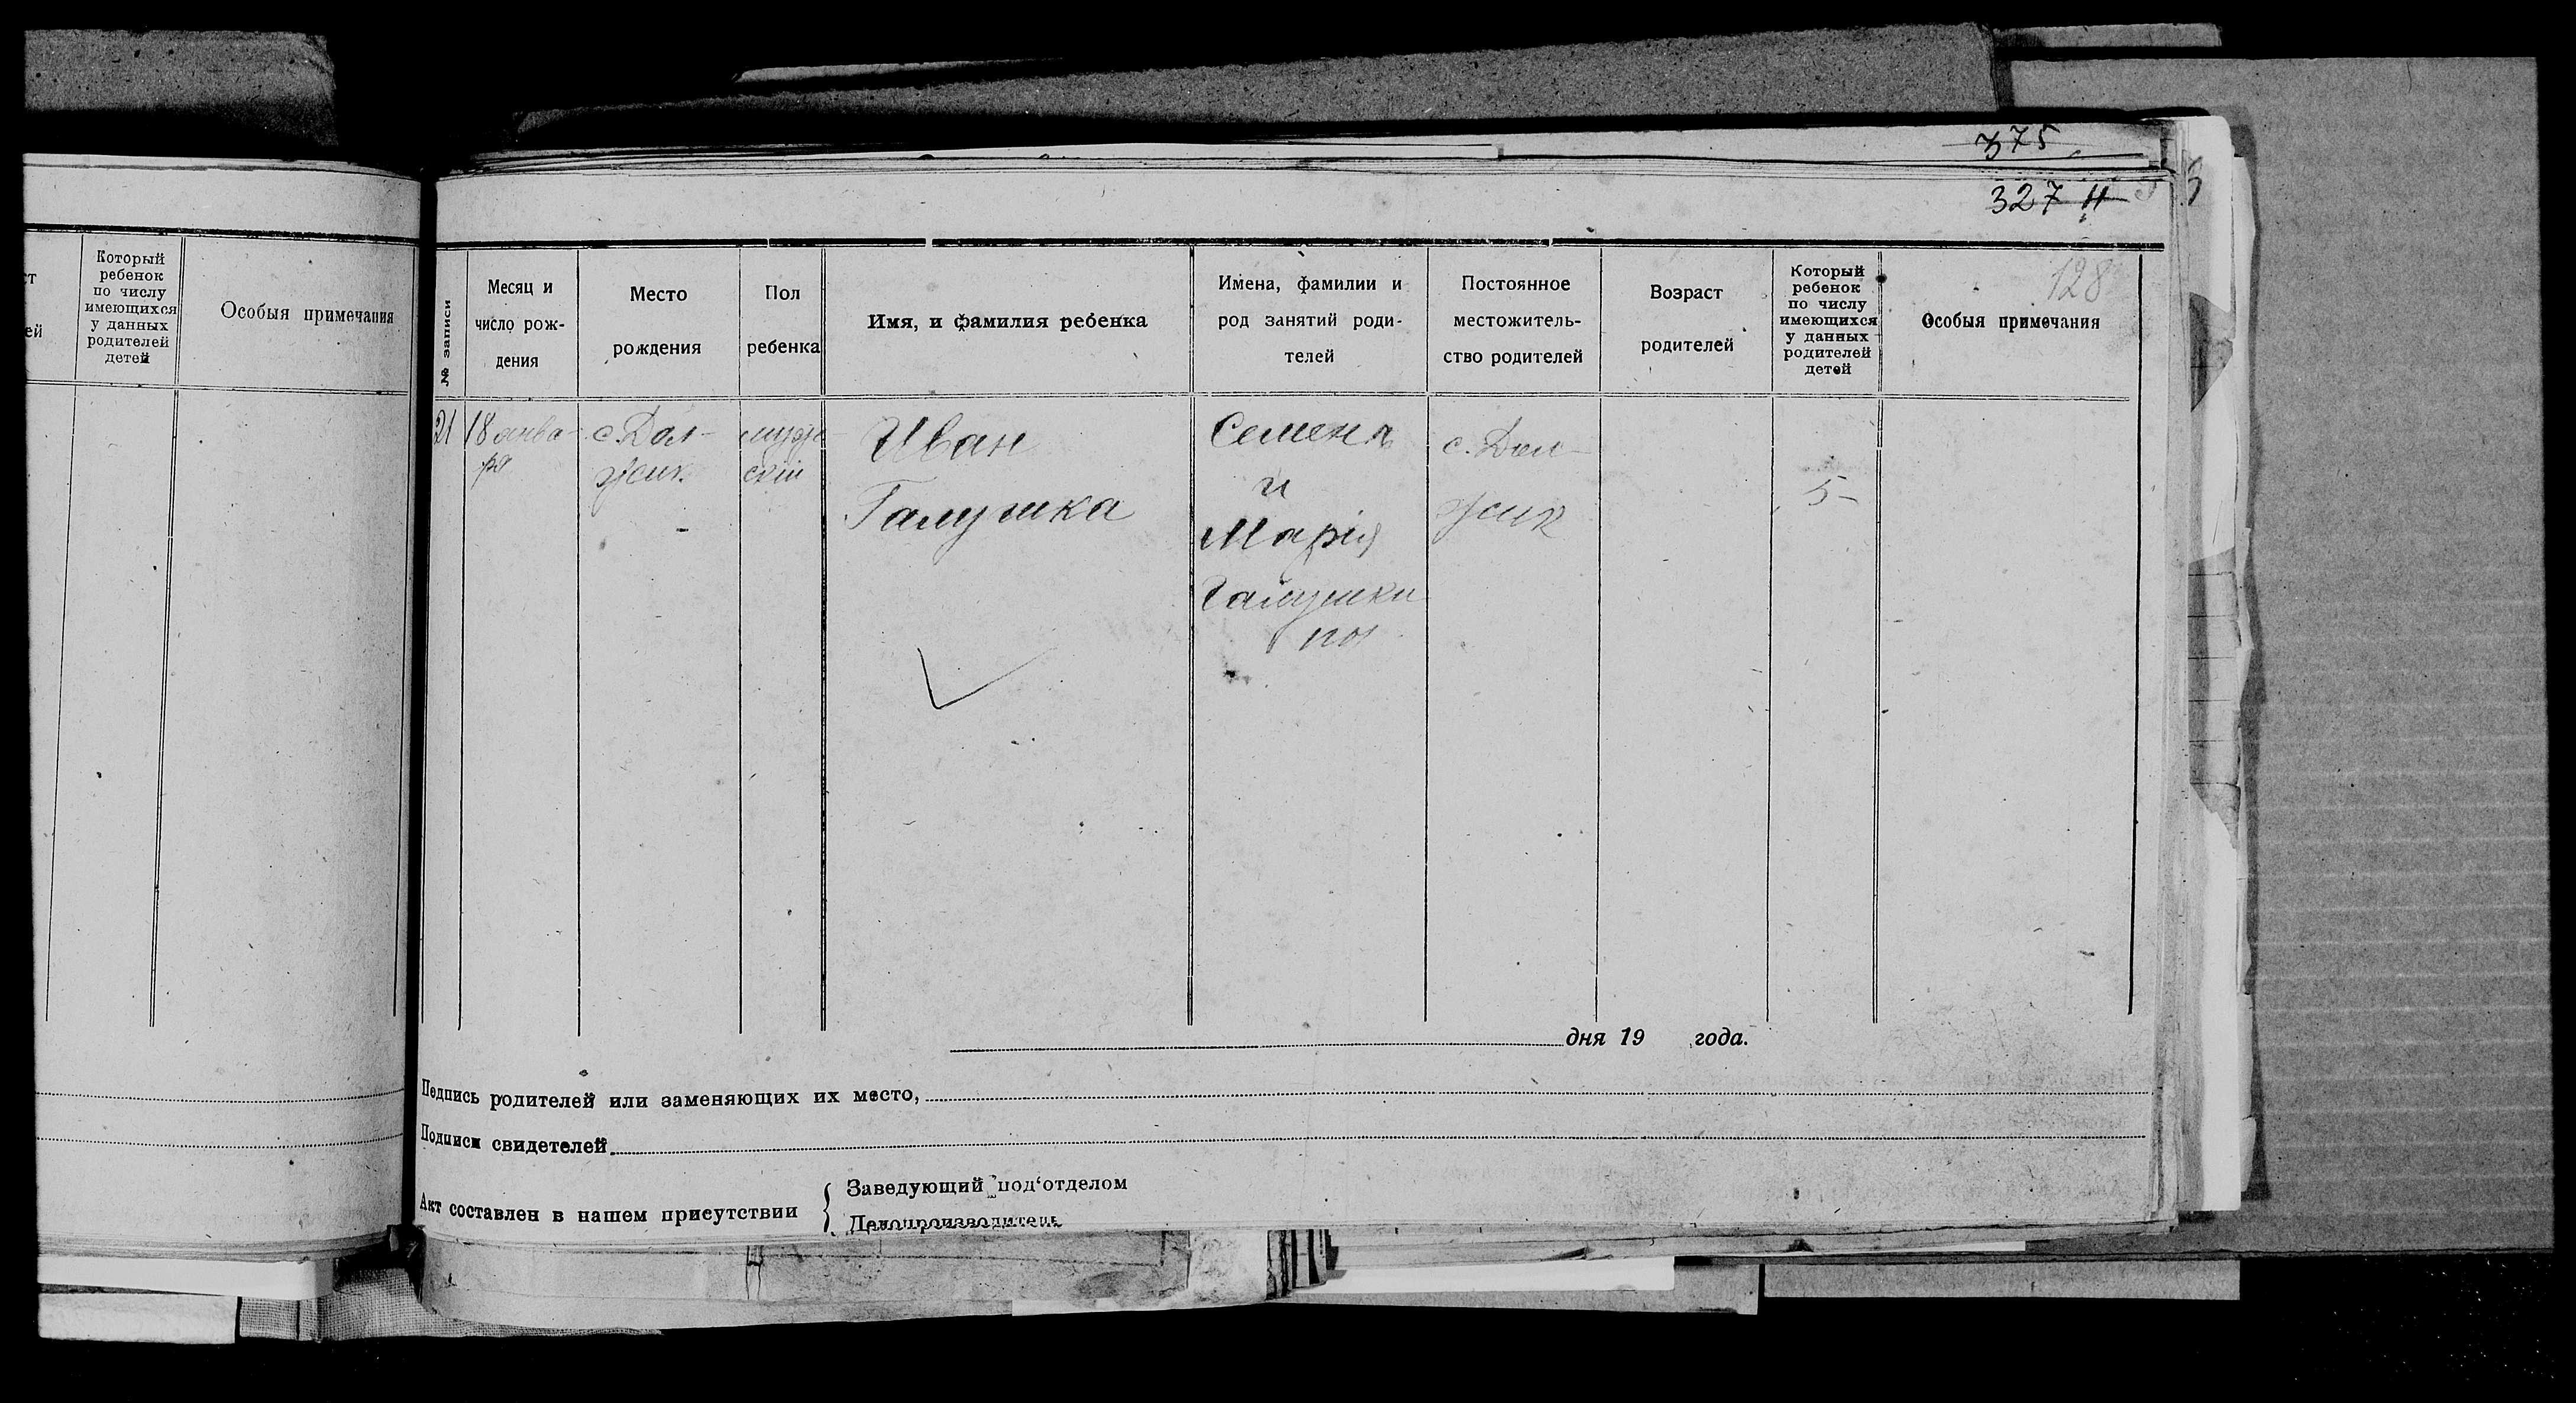 375
327
128
ст
ей
Который
ребенок
по числу
имеющихся
у данных
родителей
детей
Особыя примечания
№ записи
Месяц и
число рож-
дения
Место
рождения
Пол
ребенка
Имя, и фамилия ребенка
Имена, фамилии и
род занятий роди-
телей
Постоянное
местожитель-
ство родителей
Возраст
родителей
Который
ребенок
по числу
имеющихся
у данных
родителей
детей
Особыя примечания
21
18 янва-
ря
с. Дол-
жик
мужс-
скій
Иван
Галушка
Семенъ
и
Марія
Галушки
ны
с. Дол-
жик
5-
дня 19 года.
Подпись родителей или заменяющих их место,
Подписи свидетелей
Акт составлен в нашем присутствии
Заведующий под'отделом
Делопроизводитель